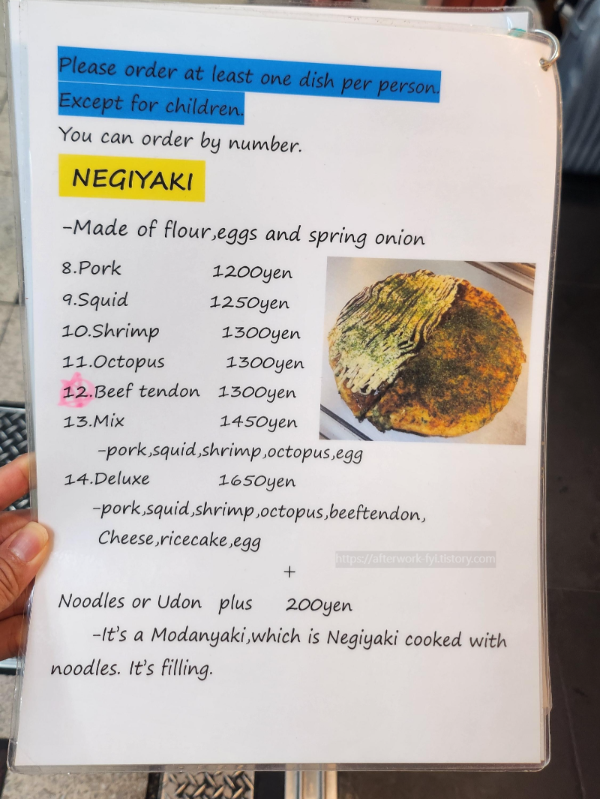 Please order at least one dish per person.
Except for children.
You can order by number.
NEGIYAKI
-Made of flour,eggs and spring onion
8.Pork 1200yen
9.Squid 1250yen
10.Shrimp 1300yen
11.Octopus 1300yen
12.Beef tendon 1300yen
13.Mix 1450yen
-pork,squid,shrimp,octopus,egg
14.Deluxe 1650yen
-pork,squid,shrimp,octopus,beeftendon,
Cheese,ricecake,egg
https://afterwork-fyi.tistory.com
+
Noodles or Udon plus 200yen
-It's a Modanyaki,which is Negiyaki cooked with
noodles. It's filling.